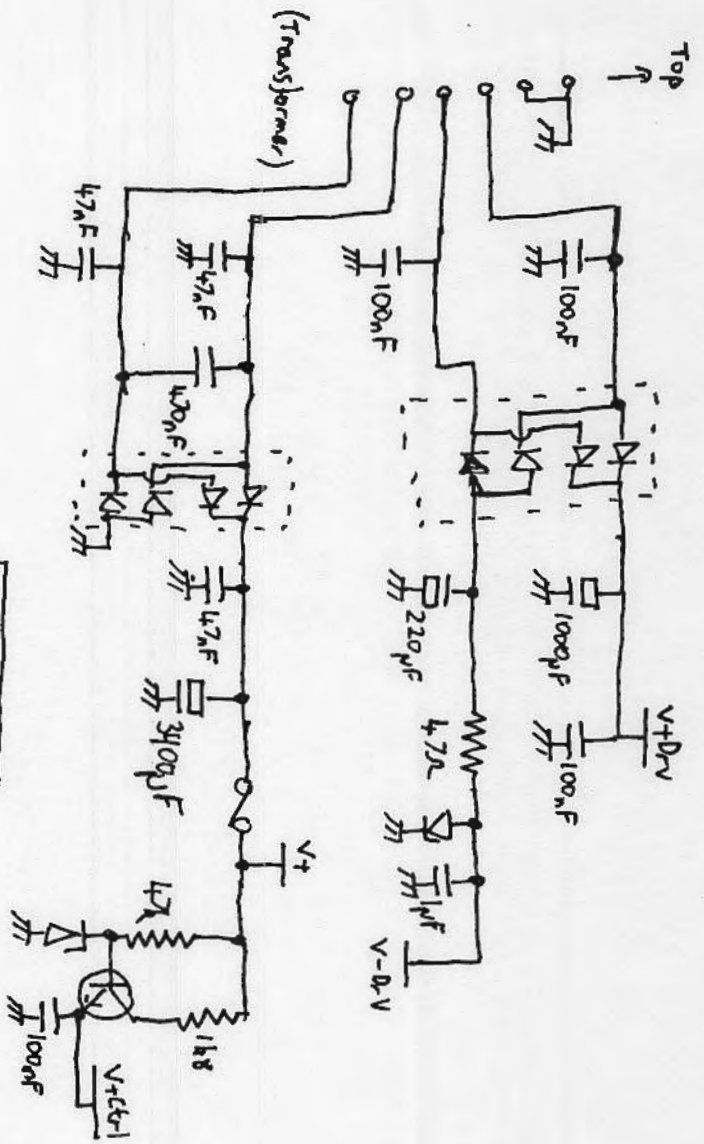 Top
(Transformer)
100nF
100nF
1000µF
100nF
V+Drv
220µF
47Ω
1µF
V-Drv
47nF
47nF
470nF
47nF
3400µF
V+
47k
1k8
100nF
V+Ctrl